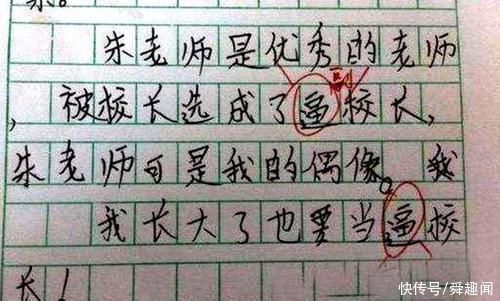 朱老师是优秀的老师
副
，被校长选成了逼校长，
朱老师可是我的偶像。我
我长大了也要当逼校
长！
快传号/舜趣闻